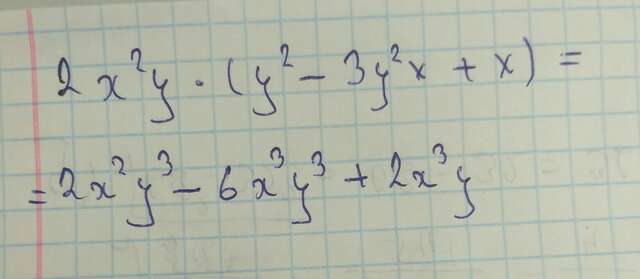 2x²y · (y² - 3y²x + x) =
= 2x²y³ - 6x³y³ + 2x³y